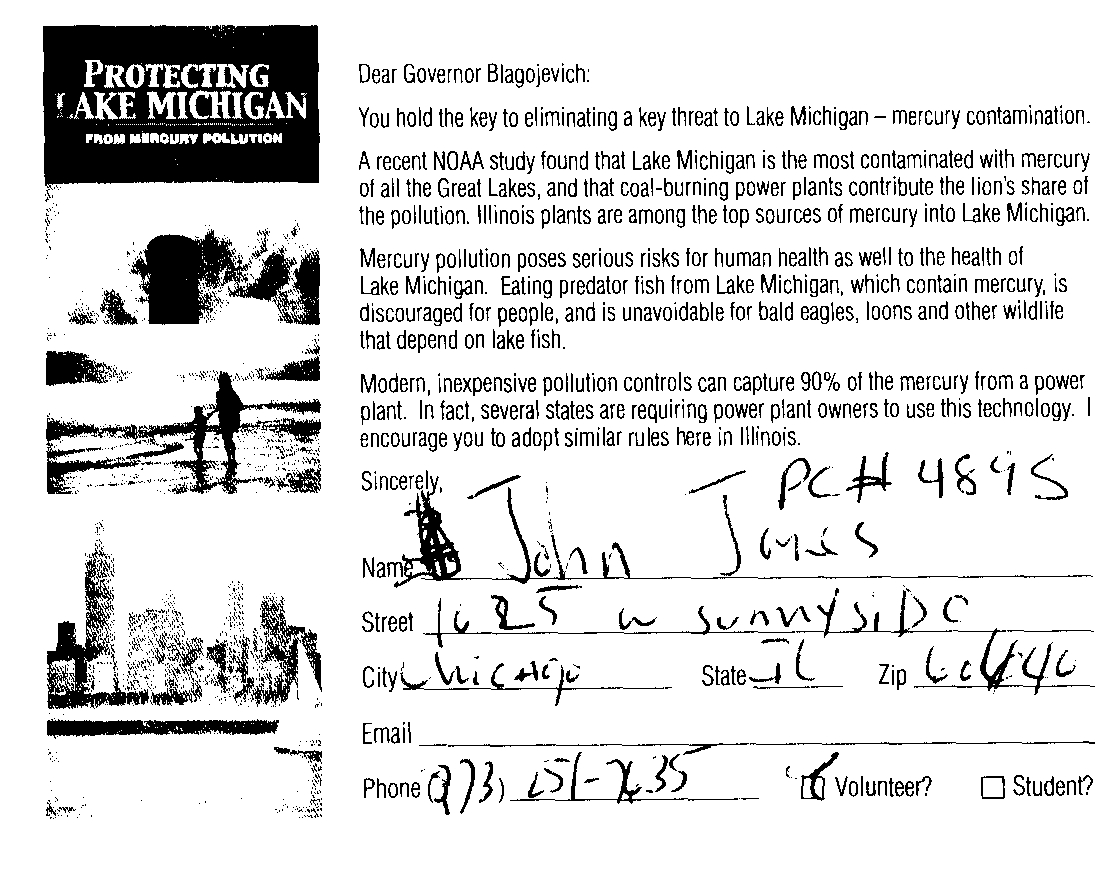 PROTECTING
LAKE MICHIGAN
FROM MERCURY POLLUTION
Dear Governor Blagojevich:
You hold the key to eliminating a key threat to Lake Michigan – mercury contamination.
A recent NOAA study found that Lake Michigan is the most contaminated with mercury
of all the Great Lakes, and that coal-burning power plants contribute the lion's share of
the pollution. Illinois plants are among the top sources of mercury into Lake Michigan.
Mercury pollution poses serious risks for human health as well to the health of
Lake Michigan. Eating predator fish from Lake Michigan, which contain mercury, is
discouraged for people, and is unavoidable for bald eagles, loons and other wildlife
that depend on lake fish.
Modern, inexpensive pollution controls can capture 90% of the mercury from a power
plant. In fact, several states are requiring power plant owners to use this technology. I
encourage you to adopt similar rules here in Illinois.
Sincerely,
PC# 4895
Name John
Street 1625 W SunnysiDe
City Chicago State IL Zip
Email
Phone Volunteer? Student?